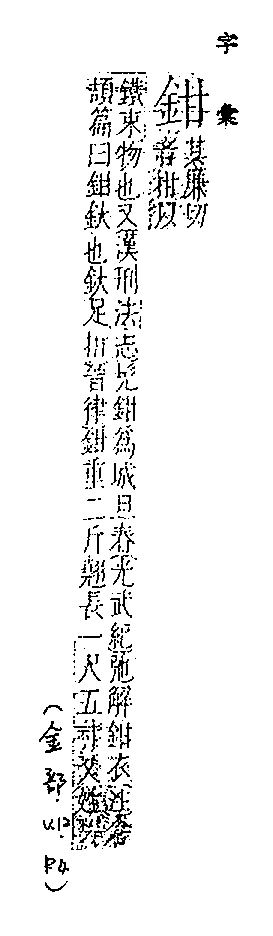 字彙
鉗其廉切音柑以
鐵束物也又漢刑法志完鉗為城旦舂光武紀弛解鉗衣
頡篇曰鉗釱也釱足 晉律鉗重二斤翹長一尺五
(金部.